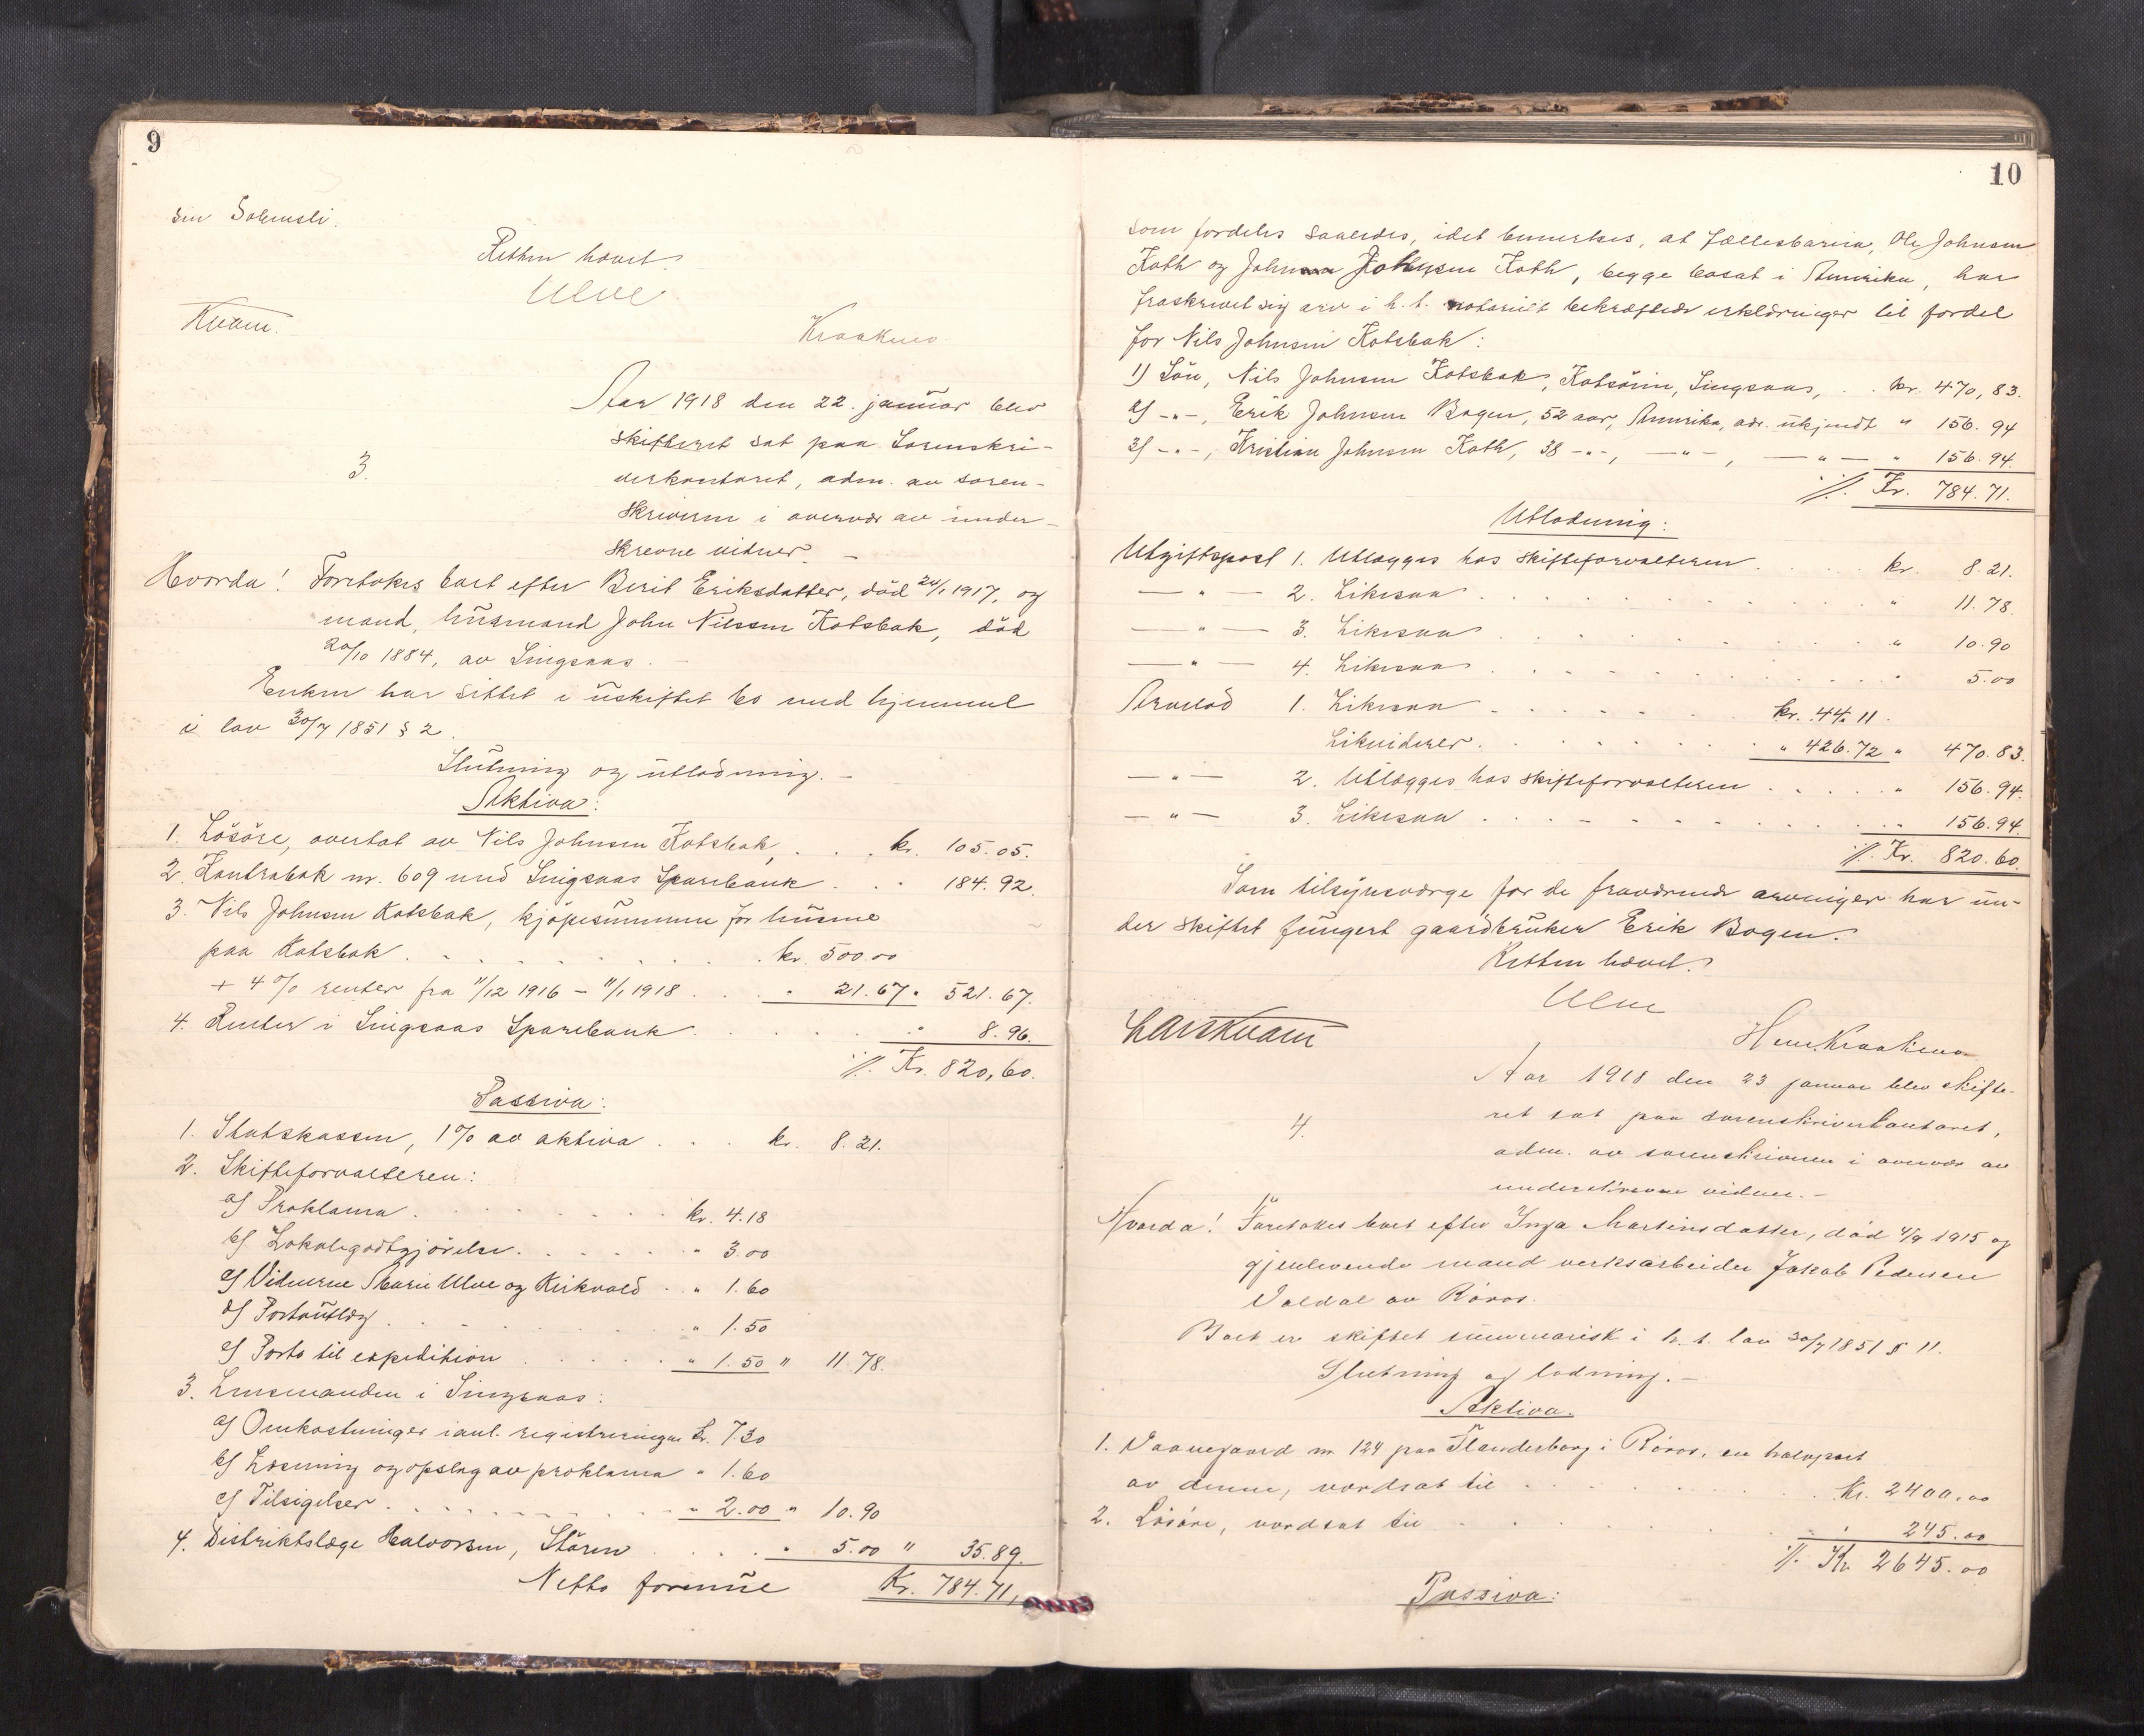 9
sen Solemsli.
Retten hævet.
Ulve
Kvam.
Kraakmo
Aar 1918 den 22. januar blev
skifteret sat paa Sorenskri-
verkontoret, adm. av soren-
3.
skriveren i overvær av under-
skrevne vidner. -
Hvorda! Foretokes boet efter Berit Eriksdatter, död 24/1 1917, og
mand, husmand John Nilssen Kotsbak, död
20/10 1884, av Singsaas. -
Enken har sittet i uskiftet bo med hjemmel
i lov 30/7 1851 § 2.
Slutning og utlodning. -
Aktiva:
1. Lösöre, overtat av Nils Johnsen Kotsbak, . . . kr. 105.05.
2. Kontrabok nr. 609 med Singsaas Sparebank . . . 184.92.
3. Nils Johnsen Kotsbak, kjöpesummen for husene
paa Kotsbak . . . . kr. 500.00
+ 4 % renter fra 11/12 1916 - 11/1 1918 . . . " 21.67 " 521.67.
4. Renter i Singsaas Sparebank . . . . " 8.96.
./. Kr. 820,60.
Passiva:
1. Statskassen, 1 % av aktiva . . . kr. 8.21.
2. Skifteforvalteren:
a) Proklama . . . . kr. 4.18
b) Lokalegodtgjörelse . . . . " 3.00
c) Vidnerne Marie Ulve og Kirkvold . . " 1.60
d) Portoutlæg . . . . " 1.50
e) Porto til expedition . . . . " 1.50 " 11.78.
3. Lensmanden i Singsaas:
a) Omkostninger i anl. registreringen kr. 7.30
b) Læsning og opslag av proklama " 1.60
c) Tilsigelser . . . . " 2.00 " 10.90
4. Distriktslæge Halvorsen, Stören . . . . " 5.00 " 35.89.
Netto formue Kr. 784.71,
10
som fordeles saaledes, idet bemerkes, at fællesbarna, Ole Johnsen
Koth og John Johnsen Koth, begge bosat i Amerika, har
fraskrevet sig arv i h. t. notarielt bekræftede erklæringer til fordel
for Nils Johnsen Kotsbak:
1) Sön, Nils Johnsen Kotsbak, Kotsöien, Singsaas, . . kr. 470,83.
2) -"-, Erik Johnsen Bogen, 52 aar, Amerika, adr. ukjendt " 156.94
3) -"-, Kristian Johnsen Koth, 38 -"-, -"-, -"- " 156.94.
./. Kr. 784.71.
Utlodning:
Utgiftspost 1. Utlægges hos skifteforvalteren . . . . kr. 8.21.
-"- 2. Likesaa . . . . " 11.78.
-"- 3. Likesaa . . . . " 10.90
-"- 4. Likesaa . . . . " 5.00
Arvelod 1. Likesaa . . . . kr. 44.11.
Likviderer . . . . " 426.72 " 470.83.
-"- 2. Utlægges hos skifteforvalteren . . . . " 156.94.
-"- 3. Likesaa . . . . " 156.94.
./. Kr. 820.60.
Som tilsynsværge for de fraværende arvinger har un-
der skiftet fungert gaardbruker Erik Bogen.
Retten hævet.
Ulve
Lars Kvam
Kraakmo
Aar 1918 den 23 januar blev skifte-
ret sat paa sorenskriverkontoret,
4.
adm. av sorenskriveren i overvær av
underskrevne vidner. -
Hvorda! Foretokes boet efter Inga Martinsdatter, död 4/9 1915 og
gjenlevende mand verksarbeider Jakob Pedersen
Valdal av Röros.
Boet er skiftet summarisk i h. t. lov 30/7 1851 § 11.
Slutning og lodning. -
Aktiva.
1. Vaanegaard nr 124 paa Flanderborg i Röros, en halvpart
av denne, verdsat til . . . . Kr. 2400.00
2. Lösöre, verdsat til . . . . " 245.00
./. Kr 2645.00
Passiva: